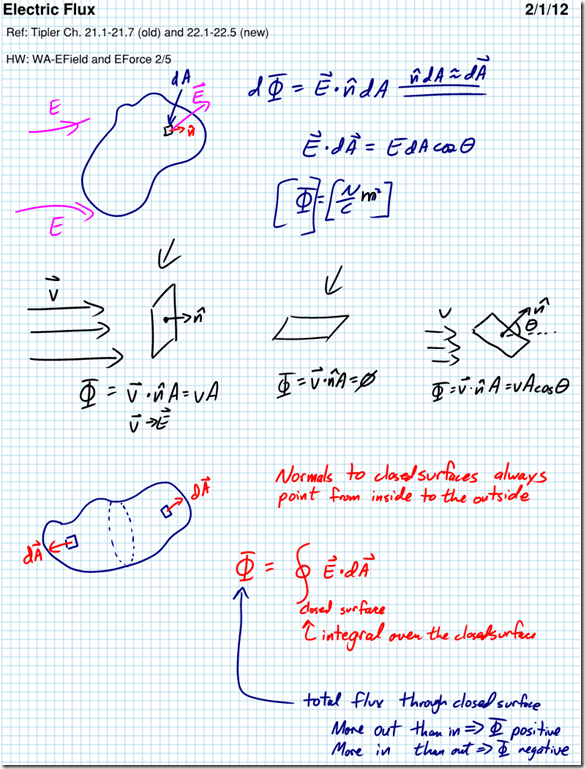 Electric Flux 2/1/12
Ref: Tipler Ch. 21.1-21.7 (old) and 22.1-22.5 (new)
HW: WA-EField and EForce 2/5
dA
E⃗
E
n̂
E
dΦ = E⃗·n̂dA n̂dA≈dA⃗
E⃗·dA⃗ = EdAcosθ
[Φ]=[N/C m²]
v⃗
n̂
v
n̂
θ
Φ = v⃗·n̂A=vA
v⃗→E⃗
Φ=v⃗·n̂A=∅
Φ=v⃗·n̂A=vAcosθ
dA⃗
dA⃗
Normals to closed surfaces always
point from inside to the outside
Φ = ∮ E⃗·dA⃗
closed surface
↑ integral over the closed surface
total flux through closed surface
More out than in ⇒ Φ positive
More in than out ⇒ Φ negative